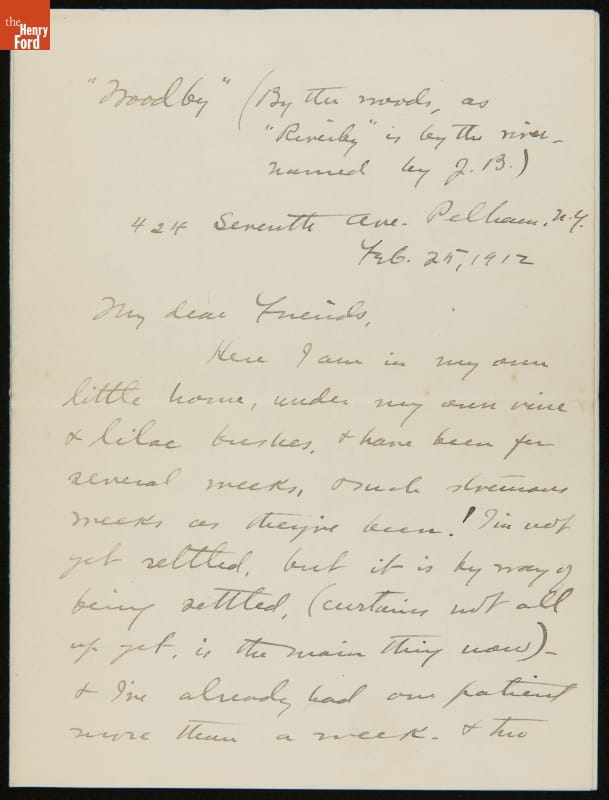 the
Henry
Ford
"Woodby" (By the woods, as
"Riverby" is by the river -
named by J. B.)
424 Seventh Ave. Pelham, N.Y.
Feb. 25, 1912
My dear Friends,
Here I am in my own
little home, under my own vine
& lilac bushes, & have been for
several weeks, & such strenuous
weeks as they've been! I'm not
yet settled, but it is by way of
being settled, (curtains not all
up yet, is the main thing now) -
& I've already had one patient
more than a week - & two